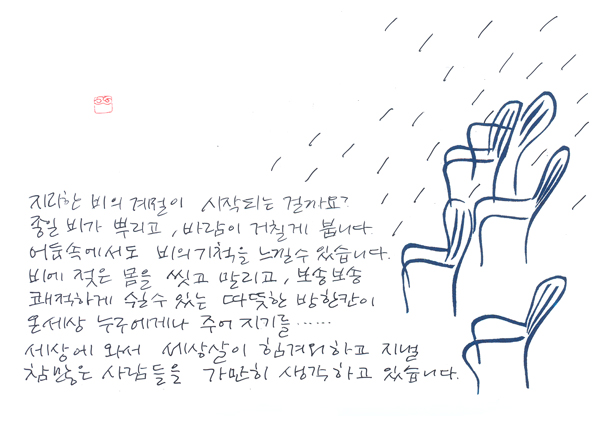 지리한 비의 계절이 시작되는 걸까요?
종일 비가 뿌리고, 바람이 거칠게 붑니다.
어둠속에서도 비의기척을 느낄수 있습니다.
비에 젖은 몸을 씻고 말리고, 보송보송
쾌적하게 쉬실 수 있는 따뜻한 방한칸이
온세상 누구에게나 주어 지기를……
세상에 와서 세상살이 힘겨워하고 지낼
참많은 사람들을 가만히 생각하고 있습니다.